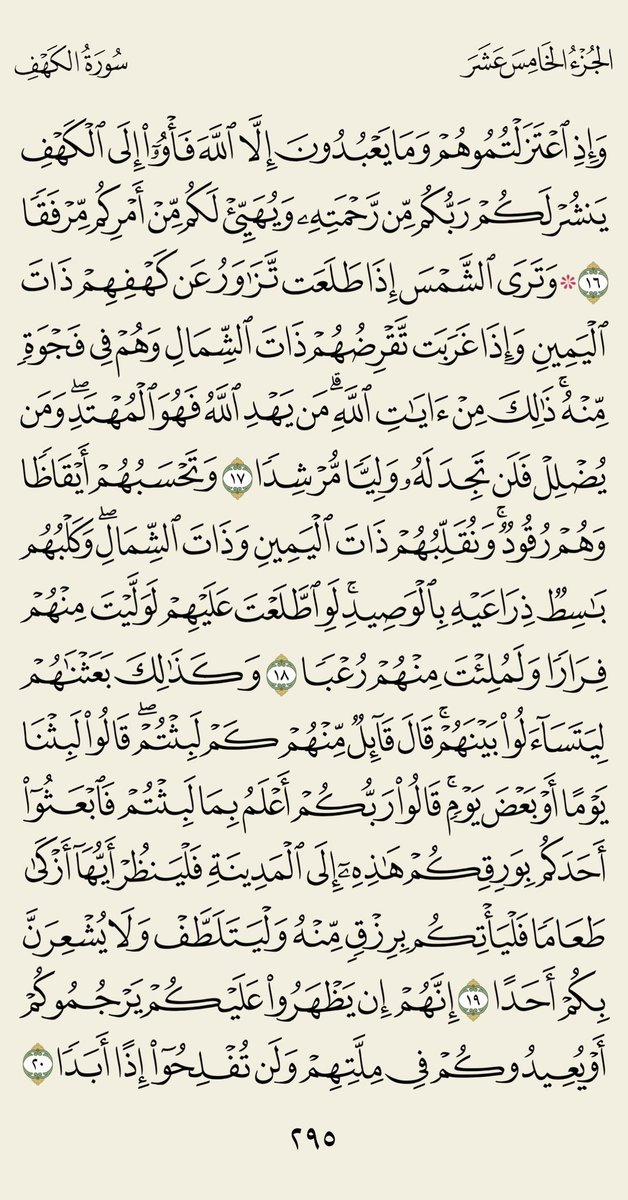 الجُزْءُ الخَامِسَ عَشَرَ
سُورَةُ الكَهْفِ
وَإِذِ ٱعْتَزَلْتُمُوهُمْ وَمَا يَعْبُدُونَ إِلَّا ٱللَّهَ فَأْوُۥٓا۟ إِلَى ٱلْكَهْفِ
يَنشُرْ لَكُمْ رَبُّكُم مِّن رَّحْمَتِهِۦ وَيُهَيِّئْ لَكُم مِّنْ أَمْرِكُم مِّرْفَقًا
١٦ * وَتَرَى ٱلشَّمْسَ إِذَا طَلَعَت تَّزَٰوَرُ عَن كَهْفِهِمْ ذَاتَ
ٱلْيَمِينِ وَإِذَا غَرَبَت تَّقْرِضُهُمْ ذَاتَ ٱلشِّمَالِ وَهُمْ فِى فَجْوَةٍ
مِّنْهُ ۚ ذَٰلِكَ مِنْ ءَايَٰتِ ٱللَّهِ ۗ مَن يَهْدِ ٱللَّهُ فَهُوَ ٱلْمُهْتَدِ ۖ وَمَن
يُضْلِلْ فَلَن تَجِدَ لَهُۥ وَلِيًّا مُّرْشِدًا ١٧ وَتَحْسَبُهُمْ أَيْقَاظًا
وَهُمْ رُقُودٌ ۚ وَنُقَلِّبُهُمْ ذَاتَ ٱلْيَمِينِ وَذَاتَ ٱلشِّمَالِ ۖ وَكَلْبُهُم
بَٰسِطٌ ذِرَاعَيْهِ بِٱلْوَصِيدِ ۚ لَوِ ٱطَّلَعْتَ عَلَيْهِمْ لَوَلَّيْتَ مِنْهُمْ
فِرَارًا وَلَمُلِئْتَ مِنْهُمْ رُعْبًا ١٨ وَكَذَٰلِكَ بَعَثْنَٰهُمْ
لِيَتَسَآءَلُوا۟ بَيْنَهُمْ ۚ قَالَ قَآئِلٌ مِّنْهُمْ كَمْ لَبِثْتُمْ ۖ قَالُوا۟ لَبِثْنَا
يَوْمًا أَوْ بَعْضَ يَوْمٍ ۚ قَالُوا۟ رَبُّكُمْ أَعْلَمُ بِمَا لَبِثْتُمْ فَٱبْعَثُوٓا۟
أَحَدَكُم بِوَرِقِكُمْ هَٰذِهِۦٓ إِلَى ٱلْمَدِينَةِ فَلْيَنظُرْ أَيُّهَآ أَزْكَىٰ
طَعَامًا فَلْيَأْتِكُم بِرِزْقٍ مِّنْهُ وَلْيَتَلَطَّفْ وَلَا يُشْعِرَنَّ
بِكُمْ أَحَدًا ١٩ إِنَّهُمْ إِن يَظْهَرُوا۟ عَلَيْكُمْ يَرْجُمُوكُمْ
أَوْ يُعِيدُوكُمْ فِى مِلَّتِهِمْ وَلَن تُفْلِحُوٓا۟ إِذًا أَبَدًا ٢٠
٢٩٥